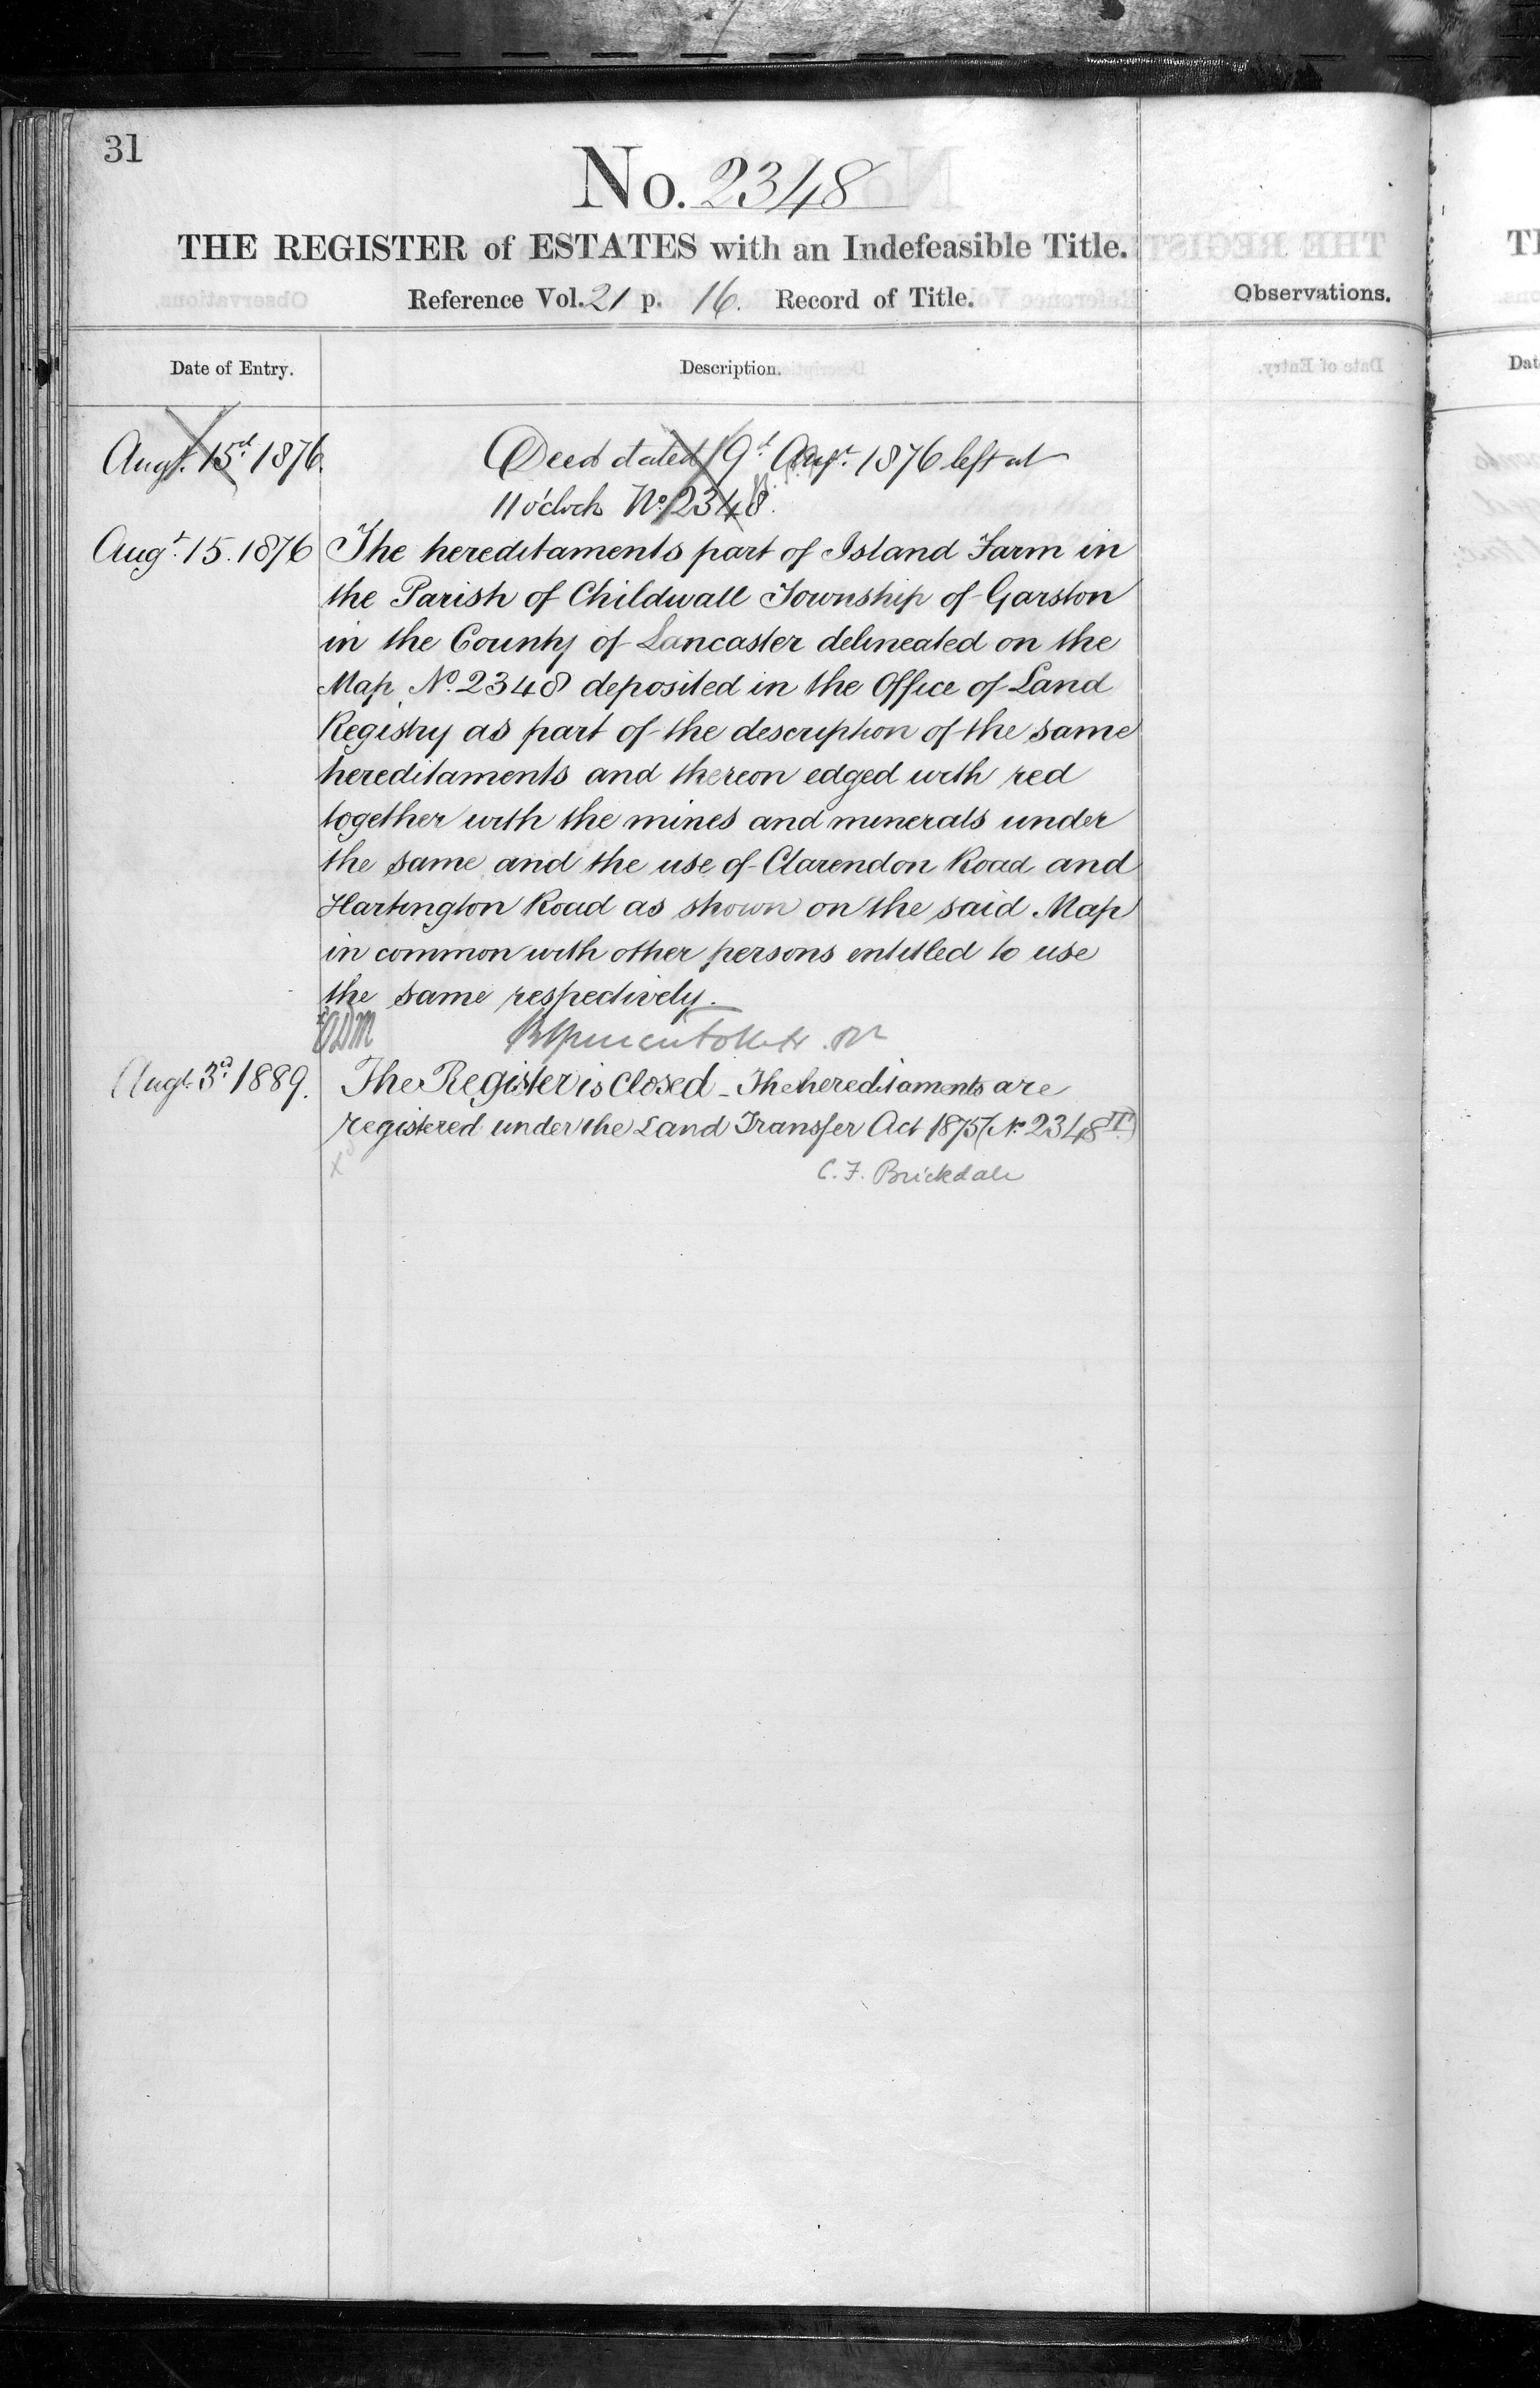 31
No. 2348
THE REGISTER of ESTATES with an Indefeasible Title.
Reference Vol. 21 p. 16. Record of Title.
Observations.
Date of Entry.
Description.
Augt. 15t 1876. Deed dated 9t Augt. 1876 left at
11 o'clock No. 2348.
Augt. 15. 1876 The hereditaments part of Island Farm in
the Parish of Childwall Township of Garston
in the County of Lancaster delineated on the
Map No. 2348 deposited in the Office of Land
Registry as part of the description of the same
hereditaments and thereon edged with red
together with the mines and minerals under
the same and the use of Clarendon Road and
Hartington Road as shown on the said Map
in common with other persons entitled to use
the same respectively.
Augt. 3rd 1889. The Register is Closed - The hereditaments are
registered under the Land Transfer Act 1875 (No. 2348 II)
C. F. Brickdale